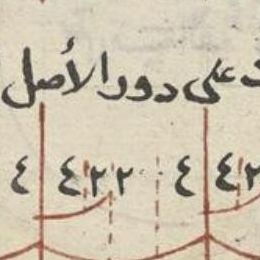 على دور الأصل
٤ ٤٢٢ ٤ ٤٢